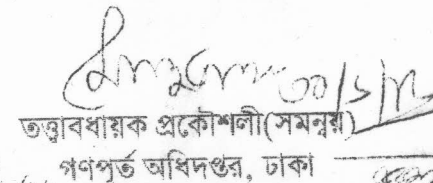 তত্ত্বাবধায়ক প্রকৌশলী(সমন্বয়)
গণপূর্ত অধিদপ্তর, ঢাকা